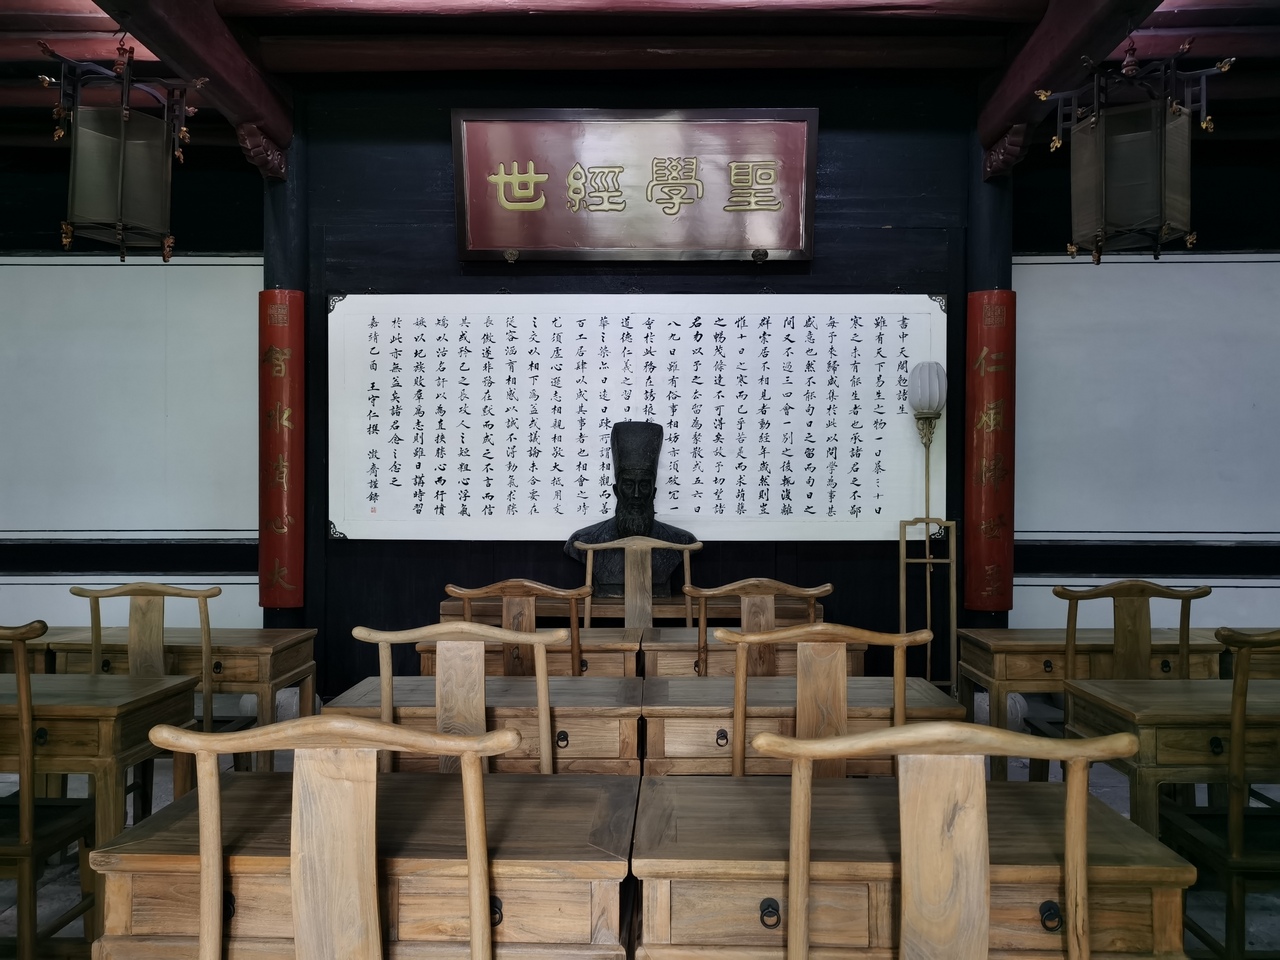 聖學經世
書中天閣勉諸生
雖有天下易生之物一日暴之十日
寒之未有能生者也承諸君之不鄙
每予來歸咸集於此以問學為事甚
盛意也然不能旬日之留而旬日之
間又不過三四會一別之後輒復離
群索居不相見者動經年歲然則豈
惟十日之寒而已乎若是而求萌櫱
之暢茂條達不可得矣故予切望諸
君勿以予之去留為聚散或五六日
八九日雖有俗事相妨亦須破冗一
會於此務在誘掖
道德仁義之習日
華之染亦日遠日疎所謂相觀而善
百工居肆以成其事者也相會之時
尤須虛心遜志相親相敬大抵朋友
之交以相下為益或議論未合要在
從容涵育相感以誠不得動氣求勝
長傲遂非務在默而成之不言而信
其或矜己之長攻人之短粗心浮氣
矯以沽名訐以為直挾勝心而行憤
嫉以圮族敗群為志則雖日講時習
於此亦無益矣諸君念之念之
嘉靖乙酉 王守仁撰 謹錄